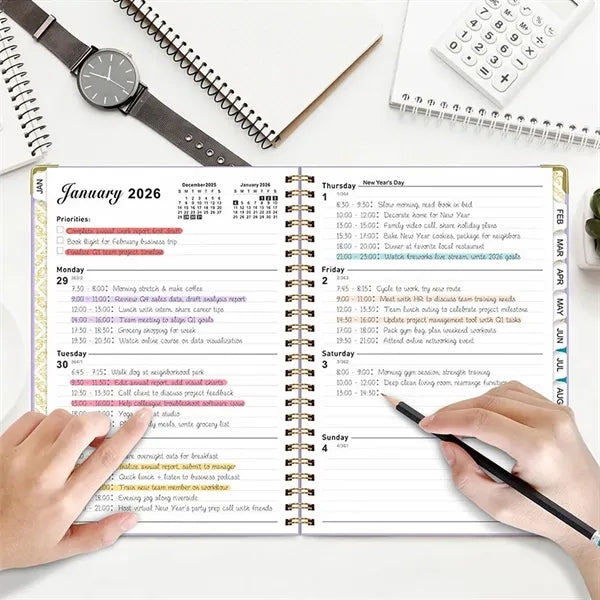 January 2026
December 2025
January 2026
Priorities:
Complete annual work report first draft
Book flight for February business trip
Finalize Q1 team project timeline
Monday
29 363/2
7:30 - 8:00: Morning stretch & make coffee
9:00 - 11:00: Review Q4 sales data, draft analysis report
12:00 - 13:00: Lunch with intern, share career tips
14:00 - 16:00: Team meeting to align Q1 goals
17:30 - 18:30: Grocery shopping for week
19:30 - 20:30: Watch online course on data visualization
Tuesday
30 364/1
6:45 - 7:15: Walk dog at neighborhood park
9:30 - 11:30: Edit annual report, add visual charts
12:30 - 13:30: Call client to discuss project feedback
15:00 - 16:00: Help colleague troubleshoot software issue
18:00 Yoga at studio
meals, write grocery list
overnight oats for breakfast
annual report, submit to manager
Quick lunch + listen to business podcast
Train new team member on workflow
18:00: Evening jog along riverside
20:00: Host virtual New Year's party prep call with friends
Thursday New Year's Day
1 1/364
8:30 - 9:30: Slow morning, read book in bed
10:00 - 12:00: Decorate home for New Year
13:00 - 15:00: Family video call, share holiday plans
15:30 - 17:30: Bake New Year cookies, package for neighbors
18:00 - 20:00: Dinner at favorite local restaurant
21:00 - 23:59: Watch fireworks live stream, write 2026 goals
Friday
2 2/363
7:15 - 8:15: Cycle to work, try new route
9:00 - 11:00: Meet with HR to discuss team training needs
11:30 - 12:30: Team lunch outing to celebrate project milestone
14:30 - 16:30: Update project management tool with Q1 tasks
17:00 - 18:00: Pack gym bag, plan weekend workouts
19:30 - 21:30: Attend online networking event
Saturday
3 3/362
8:00 - 9:00: Morning gym session, strength training
10:00 - 12:00: Deep clean living room, rearrange furniture
13:00 - 14:30:
Sunday
4 4/361
JAN
FEB
MAR
APR
MAY
JUN
JUL
AUG